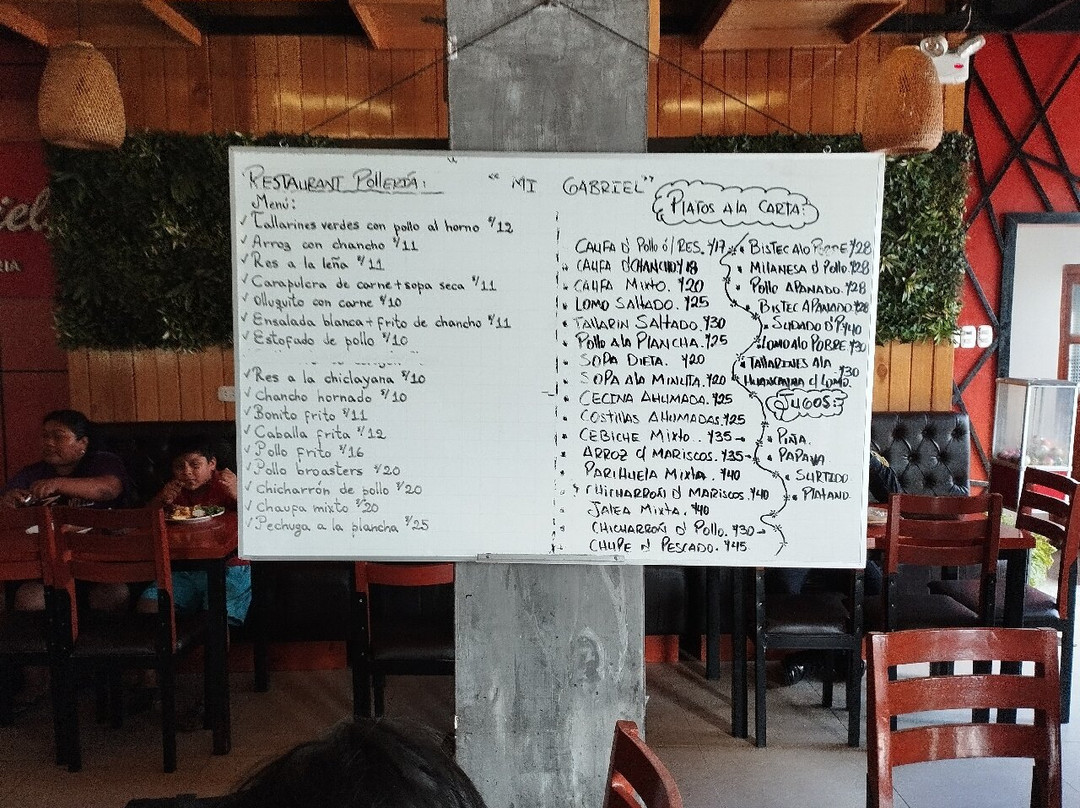 RESTAURANT POLLERÍA: "MI GABRIEL"
Menú:
✓ Tallarines verdes con pollo al horno S/12
✓ Arroz con chancho S/11
✓ Res a la leña S/11
✓ Carapulcra de carne + sopa seca S/11
✓ Olluquito con carne S/10
✓ Ensalada blanca + frito de chancho S/11
✓ Estofado de pollo S/10
✓ Res a la chiclayana S/10
✓ Chancho hornado S/10
✓ Bonito frito S/11
✓ Caballa frita S/12
✓ Pollo frito S/16
✓ Pollo broasters S/20
✓ Chicharrón de pollo S/20
✓ Chaufa mixto S/20
✓ Pechuga a la plancha S/25
PLATOS A LA CARTA:
CAUFA D' POLLO Ó/ RES. S/17
CAUFA D'CHANCHO S/18
CAUFA MIXTO. S/20
LOMO SALTADO. S/25
TALLARIN SALTADO. S/30
POLLO A LA PLANCHA. S/25
SOPA DIETA. S/20
SOPA A LA MINUTA. S/20
CECINA AHUMADA. S/25
COSTILLAS AHUMADAS. S/25
CEBICHE MIXTO.. S/35
ARROZ D' MARISCOS. S/35
PARIHUELA MIXTA. S/40
CHICHARRON D' MARISCOS. S/40
JALEA MIXTA. S/40
CHICHARRON D' POLLO. S/30
CHUPE D' PESCADO. S/45
BISTEC A LO POBRE S/28
MILANESA D' POLLO. S/28
POLLO APANADO. S/28
BISTEC APANADO. S/28
SUDADO D'P. S/40
LOMO A LO POBRE. S/30
TALLARINES A LA
HUANCAINA C/ LOMO. S/30
JUGOS:
PIÑA.
PAPAYA
SURTIDO
PLATANO.
iel
RIA